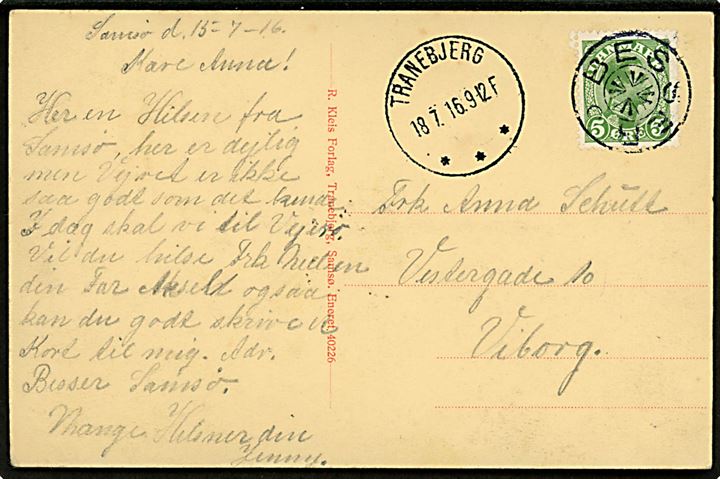 Samsø d. 15-7-16.
Kære Anna!
Her en Hilsen fra
Samsø, her er dejlig
men Vejret er ikke
saa godt som det kunde.
I dag skal vi til Vejrø.
Vil du hilse Frk Nielsen
din Far ogsaa
kan du godt skrive
Kort til mig. Adr.
Besser Samsø.
Mange Hilsner din
Jenny.
R. Kleis Forlag, Tranebjerg, Samsø. Eneret 40226
TRANEBJERG
18.7.16.9-12F
BES
DANMARK
5 ØRE 5
Frk Anna Schütt
Vestergade 10
Viborg.